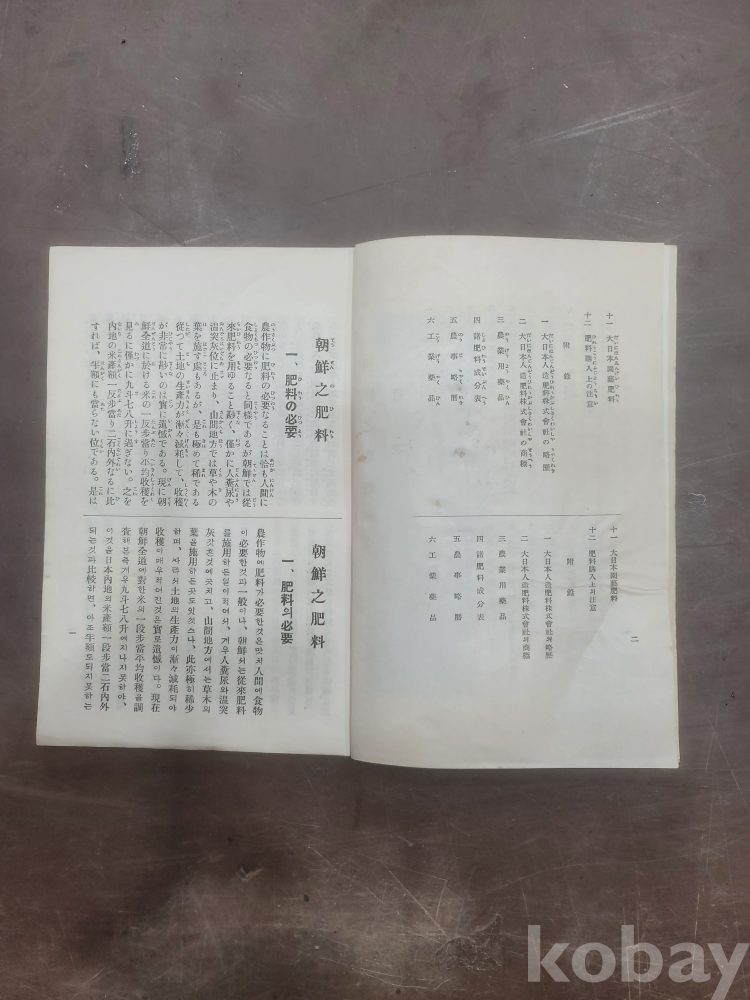 十一 大日本園藝肥料
十二 肥料購入上の注意
附錄
一 大日本人造肥料株式會社の略歷
二 大日本人造肥料株式會社の商標
三 農業用藥品
四 諸肥料成分表
五 農事略曆
六 工業藥品
十一 大日本園藝肥料
十二 肥料購入上의注意
附錄
一 大日本人造肥料株式會社의略歷
二 大日本人造肥料株式會社의商標
三 農業用藥品
四 諸肥料成分表
五 農事略曆
六 工業藥品
二
朝鮮之肥料
一、肥料の必要
農作物に肥料の必要なることは恰も人間に
食物の必要なると同樣であるが朝鮮では從
來肥料を用ゆること尠く、僅かに人糞尿や
溫突灰位に止まり、山間地方では草や木の
葉を施す處もあるが、是も極めて稀である
從つて土地の生產力が漸々消耗して、收穫
が非常に尠いのは實に遺憾である。現に朝
鮮全道に於ける米の一反步當り平均收穫を
見るに僅かに九斗七八升に過ぎない。之を
內地の米產額一反步當り二石內外なるに比
すれば、半額にも當らない位である。是は
朝鮮之肥料
一、肥料의必要
農作物에肥料가必要한것은맛치人間에食物
이必要한것과一般이나、朝鮮서는從來肥料
를施用하는일이적어서、겨우人糞尿와溫突
灰갓흔것에긋치고、山間地方에서는草木의
葉을施用하는곳도잇스나、此亦極히稀少
하며、짜라서土地의生產力이漸々減耗되야
收穫이매우적어진것은實로遺憾이다。現在
朝鮮全道에對한米의一段步當平均收穫을調
査해본즉겨우九斗七八升에지나지못하야、
이것을日本內地의米產額一段步當二石內外
되는것과比較하면、아조半額도되지못하는
一
kobay